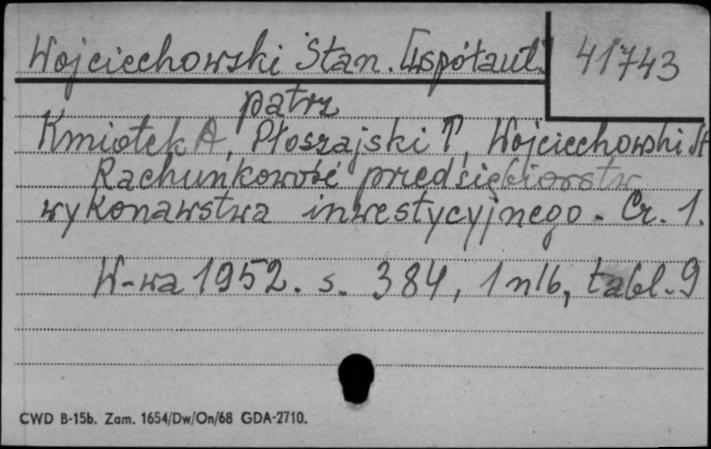 Wojciechowski Stan. [współaut.]
41743
patrz
Kmiotek A, Płoszajski T, Wojciechowski St
Rachunkowość przedsiębiorstw
wykonawstwa inwestycyjnego. Cz. 1.
W-wa 1952. s. 384, 1 nlb, tabl. 9
CWD B-15b. Zam. 1654/Dw/On/68 GDA-2710.